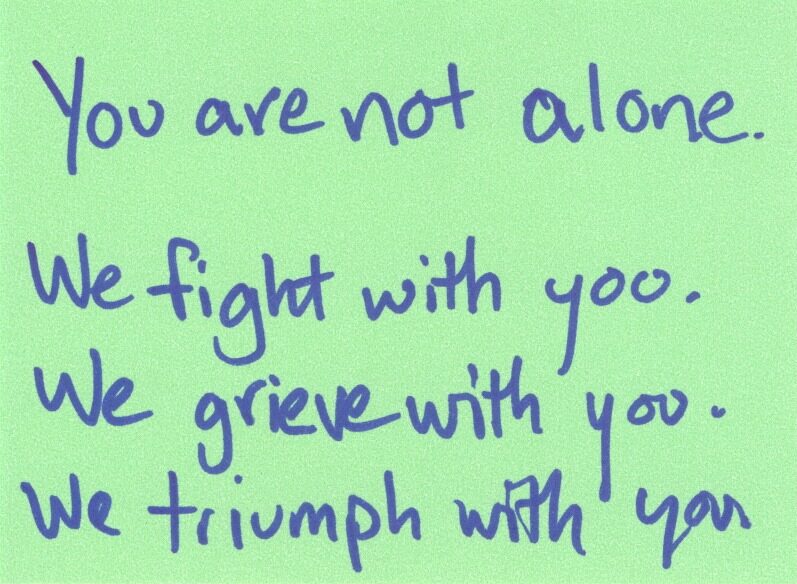 You are not alone.
We fight with you.
We grieve with you.
We triumph with you